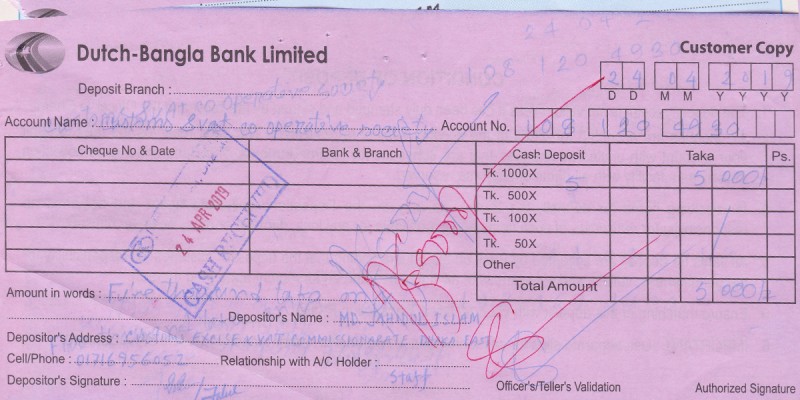 Dutch-Bangla Bank Limited
Customer Copy
24 04 2019
D D M M Y Y Y Y
Deposit Branch :
Account Name : Customs & vat co operative society Account No. 108 120 4930
Cheque No & Date Bank & Branch Cash Deposit Taka Ps.
Tk. 1000X 5 5 000/-
Tk. 500X
Tk. 100X
Tk. 50X
Other
Total Amount 5 000/-
24 APR 2019
CASH RECEIVED
Amount in words : Five thousand taka only
Depositor's Name : MD. JAHIDUL ISLAM
Depositor's Address : CUSTOMS EXCISE & VAT COMMISSIONARATE DHAKA EAST
Cell/Phone : 01716956052 Relationship with A/C Holder : Staff
Depositor's Signature : Officer's/Teller's Validation Authorized Signature